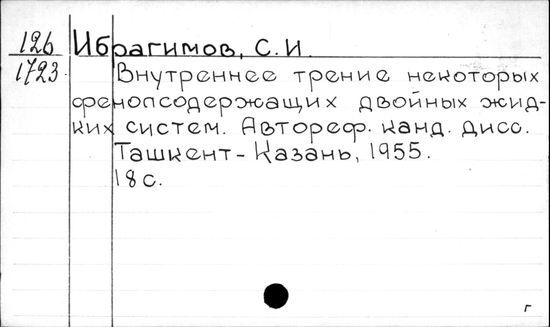 126 Ибрагимов, С.И.
1723. Внутреннее трение некоторых
фенолсодержащих двойных жид-
ких систем. Автореф. канд. дисс.
Ташкент-Казань, 1955.
18 с.
г